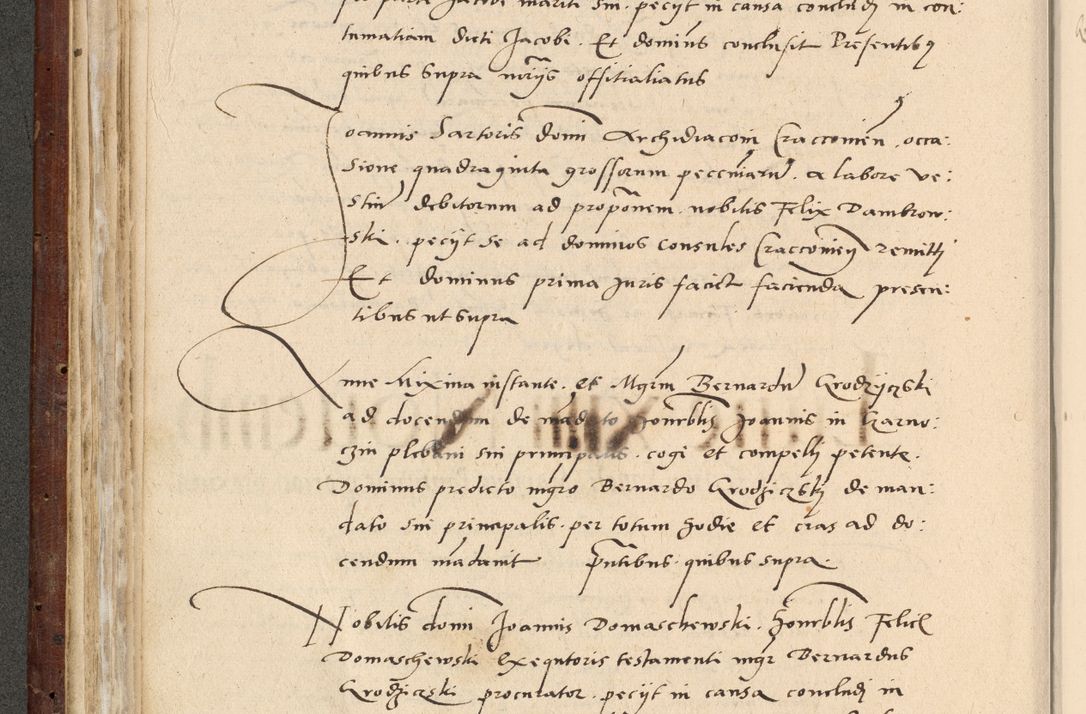 tumatiam dicti Jacobi. Et dominus conclusit Presentibus
quibus supra notariis offitialiatus
Joannis Sartoris domini Archidiaconi Cracconien occa:
sione quadraginta grossorum pecuniarum. a labore ve:
stium debitorum ad proponem. nobilis Felix Dambrow:
ski. peciit se ad dominos consules Cracconien remitti
Et dominus prima Juris faciet facienda presen:
tibus ut supra
Anne Mixina instante. et Mgrm Bernardum Grodziczski
ad docendum de mandato honorablis Joannis in Czarno:
czin plebani sui principalis. cogi et compelli petente.
Dominus predicto mgro Bernardo Grodziczski de man:
dato sui principalis. per totum hodie et cras ad do:
cendum mandavit Pntibus. quibus supra.
Nobilis domini Joannis Domaschewski. honorablis Felicis
Domaschewski Exequtoris testamenti mgr Bernardus
Grodziczski procurator. peciit in causa concludi in